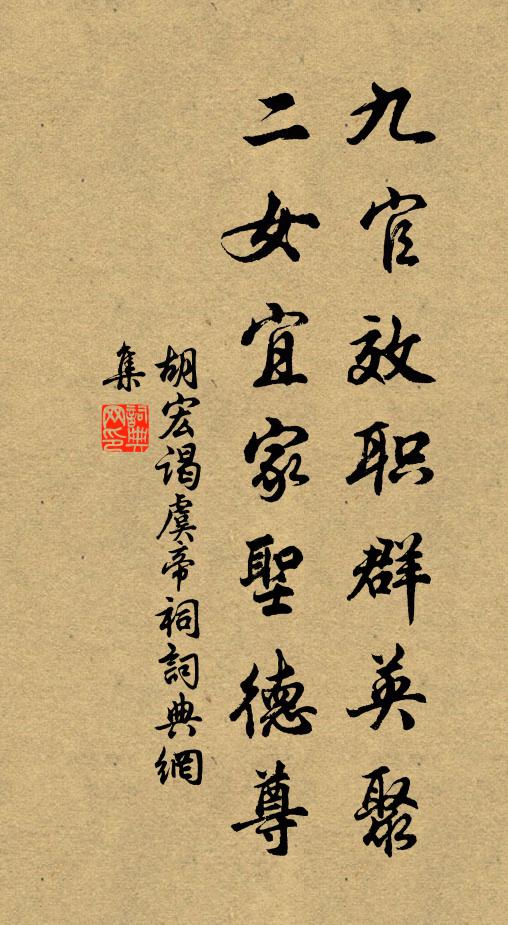 九官效职群英聚
二女宜家聖德尊
胡宏謁虞帝祠詞典網
集
詞典网印